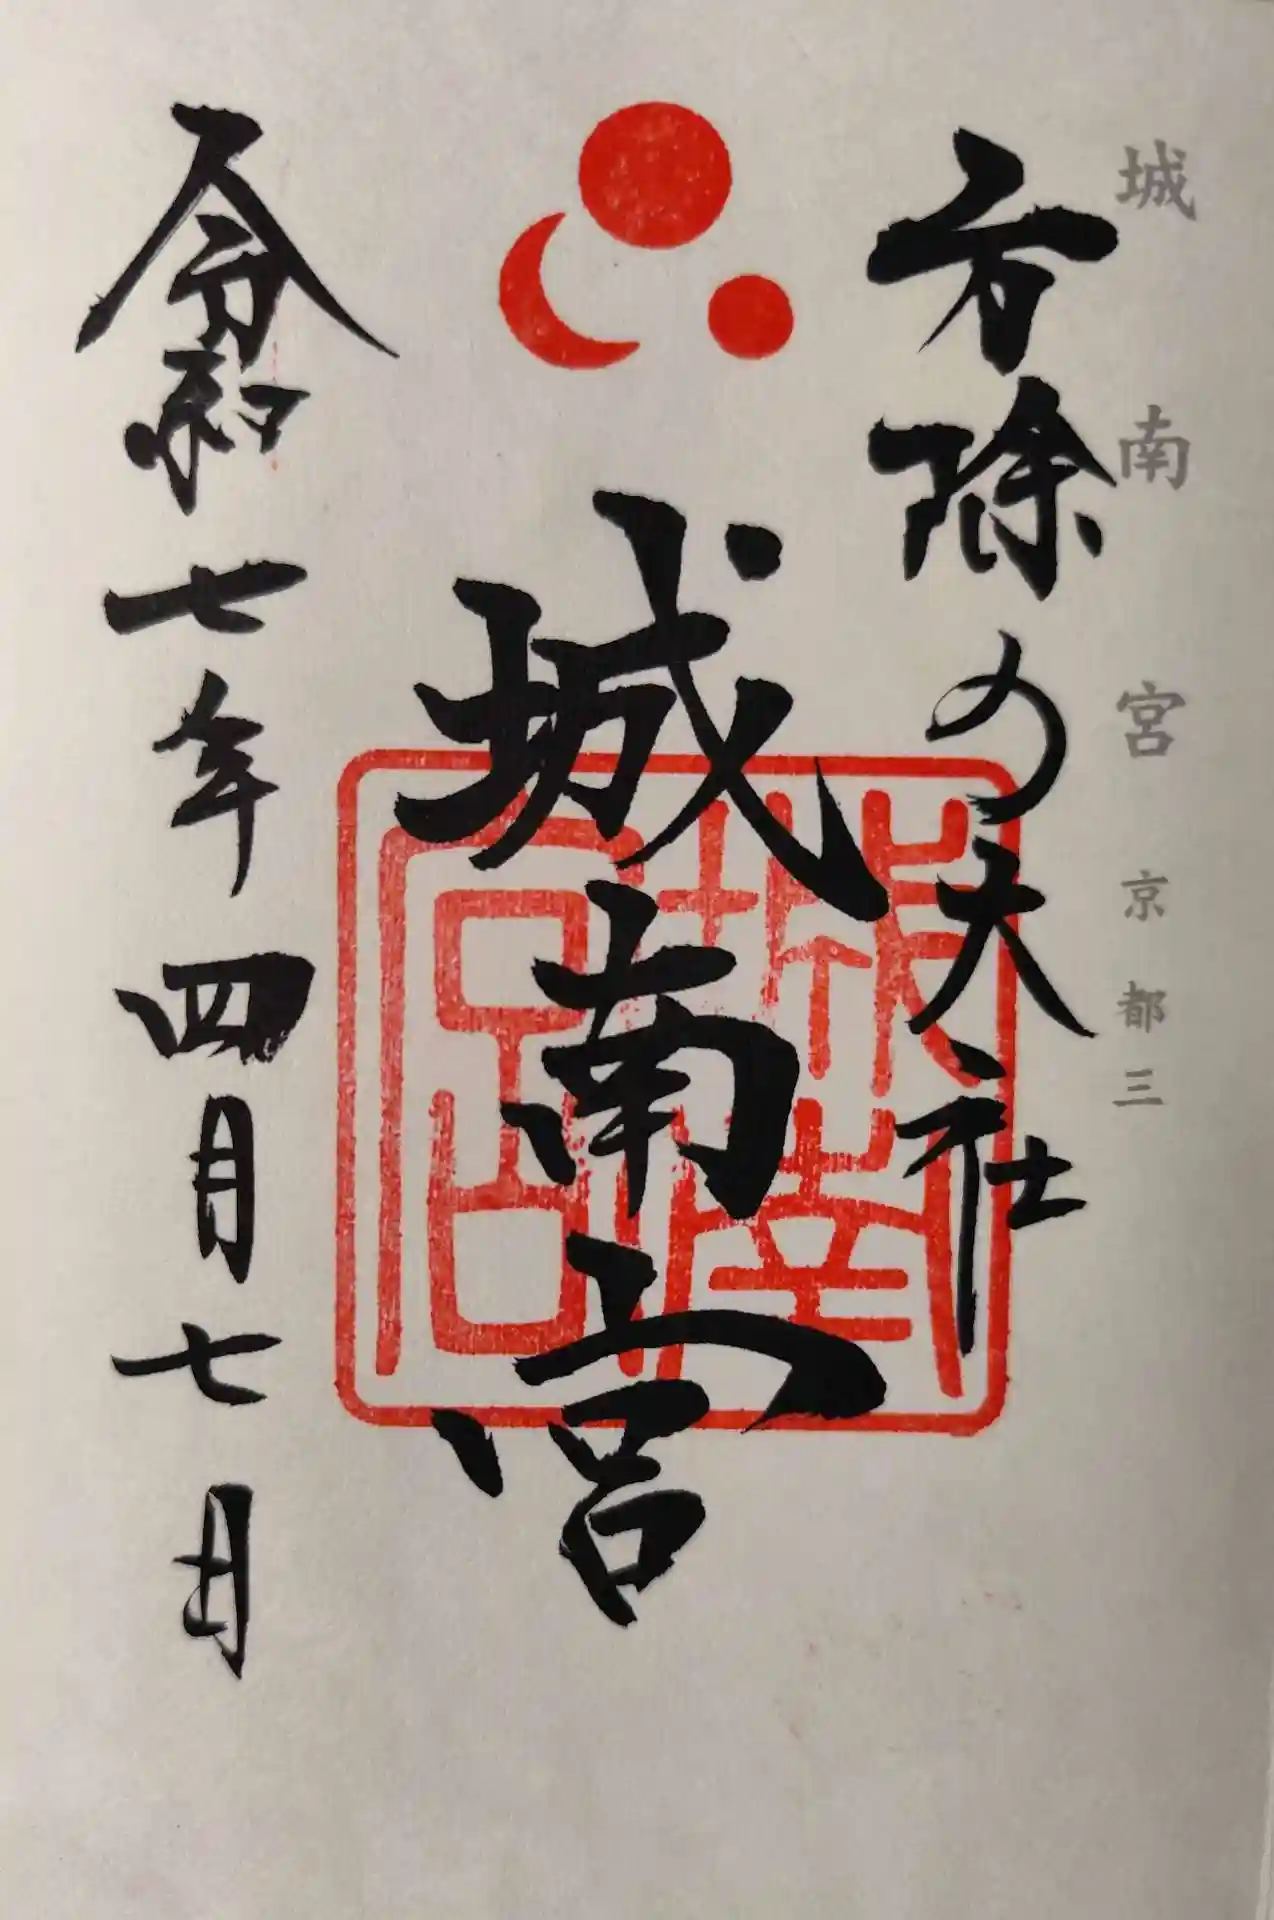 城南宮 京都三
方除の大社
城南宮
城南宮
令和七年四月七日